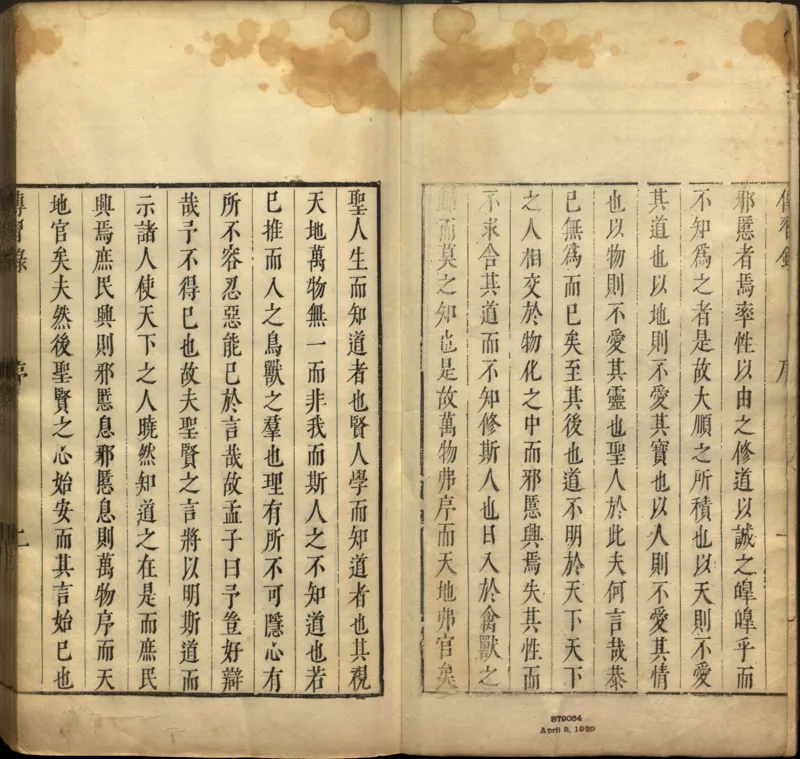 傳習錄 序 一
邪慝者焉率性以由之修道以誠之皥皥乎而
不知為之者是故大順之所積也以天則不愛
其道也以地則不愛其寶也以人則不愛其情
也以物則不愛其靈也聖人於此夫何言哉恭
已無為而已矣至其後也道不明於天下天下
之人相交於物化之中而邪慝興焉失其性而
不求舍其道而不知修斯人也日入於禽獸之
歸而莫之知也是故萬物弗序而天地弗官矣
聖人生而知道者也賢人學而知道者也其視
天地萬物無一而非我而斯人之不知道也若
已推而入之鳥獸之羣也理有所不可隱心有
所不容忍惡能已於言哉故孟子曰予豈好辯
哉予不得已也故夫聖賢之言將以明斯道而
示諸人使天下之人曉然知道之在是而庶民
興焉庶民興則邪慝息邪慝息則萬物序而天
地官矣夫然後聖賢之心始安而其言始已也
傳習錄 序 二
879064
April 8, 1920